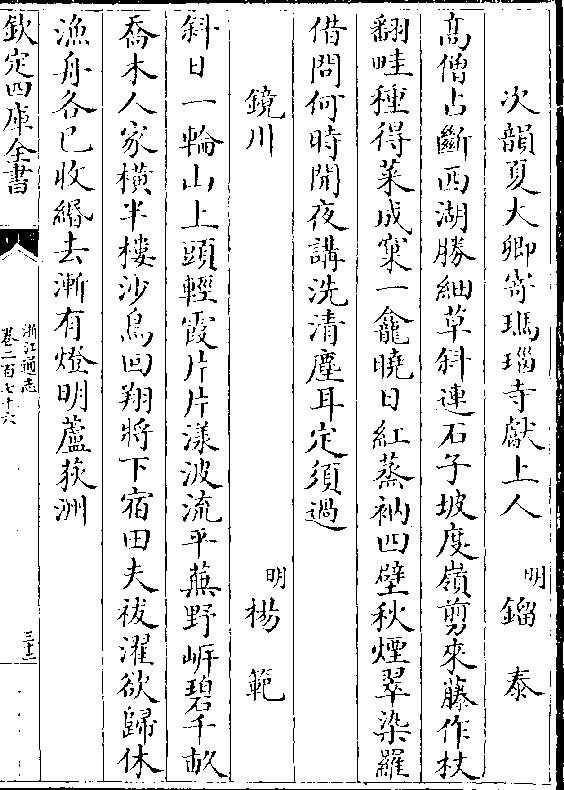 次韻夏大卿寄瑪瑙寺獻上人
明鎦泰
高僧占斷西湖勝細草斜連石子坡度嶺剪來藤作杖
翻畦種得菜成窠一龕曉日紅蒸衲四壁秋煙翠染羅
借問何時開夜講洗清塵耳定須過
鏡川
明楊範
斜日一輪山上頭輕霞片片漾波流平蕪野岍碧千畝
喬木人家橫半樓沙鳥回翔將下宿田夫祓濯欲歸休
漁舟各已收緡去漸有燈明蘆荻洲
欽定四庫全書
浙江通志
卷二百七十六
三十二